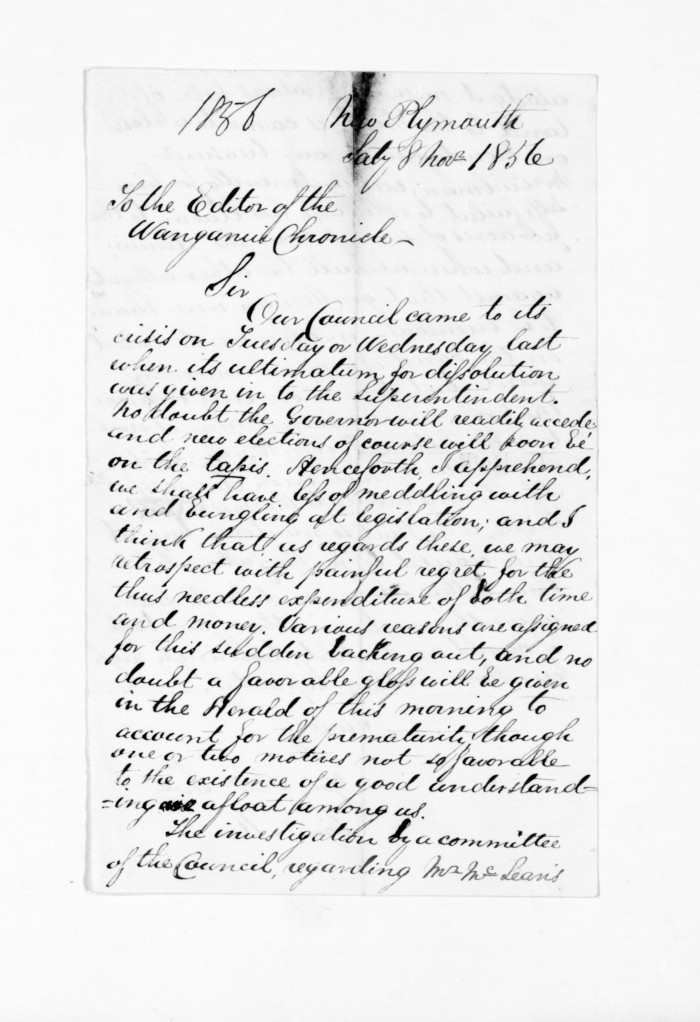 1856 New Plymouth
Saty 8 Novr 1856
To the Editor of the
Wanganui Chronicle —
Sir
Our Council came to its
crisis on Tuesday or Wednesday last
when its ultimatum for dissolution
was given in to the Superintendent.
No doubt the Governor will readily accede
and new elections of course will soon be
on the tapis. Henceforth I apprehend,
we shall have less of meddling with
and bungling at legislation; and I
think that as regards these, we may
retrospect with painful regret for the
thus needless expenditure of both time
and money. Various reasons are assigned
for this sudden backing out, and no
doubt a favorable gloss will be given
in the Herald of this morning to
account for the prematurity though
one or two motives not so favorable
to the existence of a good understand=
=ing are afloat among us.
The investigation by a committee
of the Council, regarding Mr McLean's